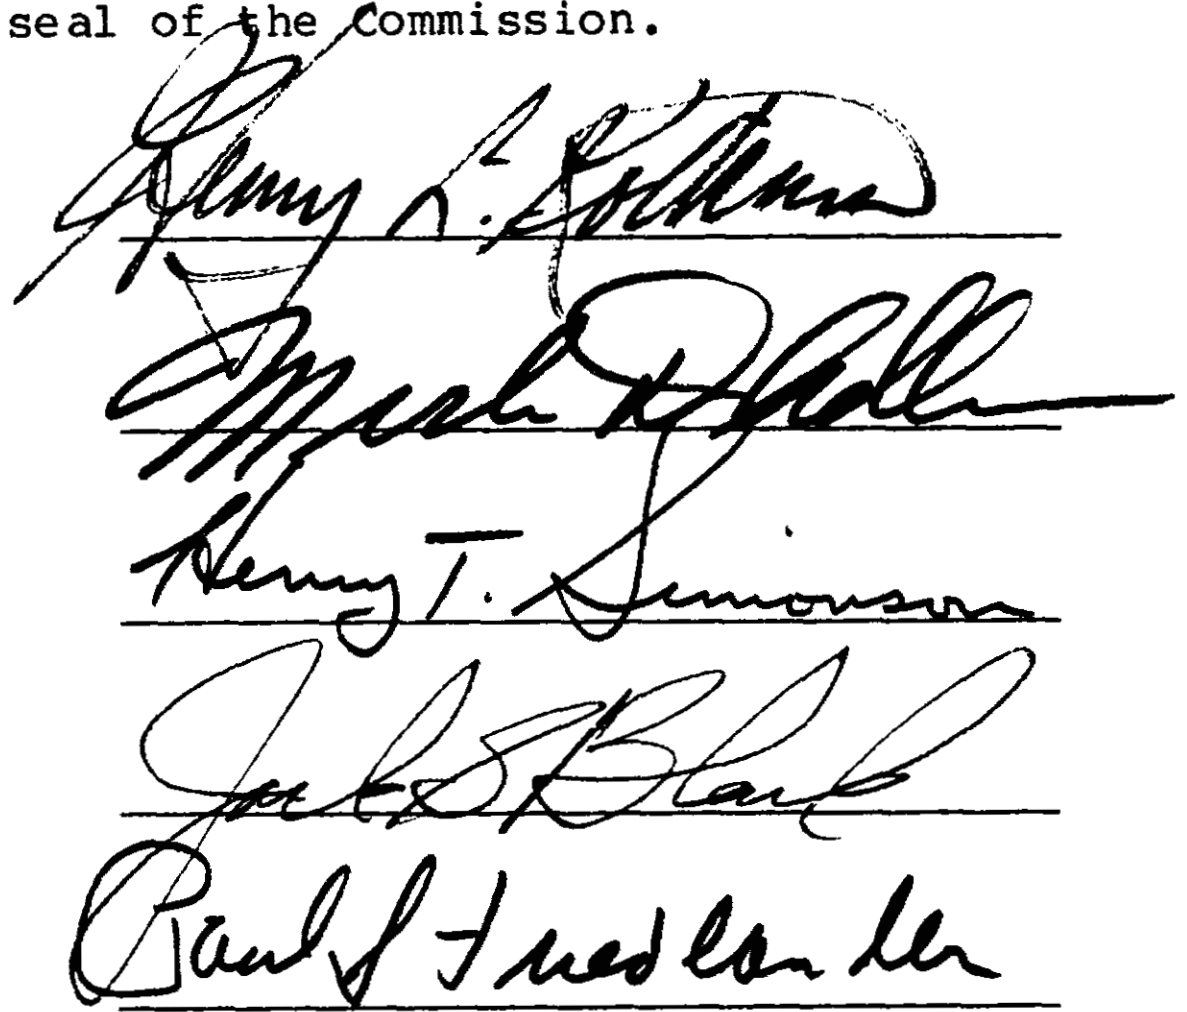 seal of the Commission.
Henry L. Rothman
Mark D. Adler
Henry T. Simonson
Jack S Black
Paul J Friedlander